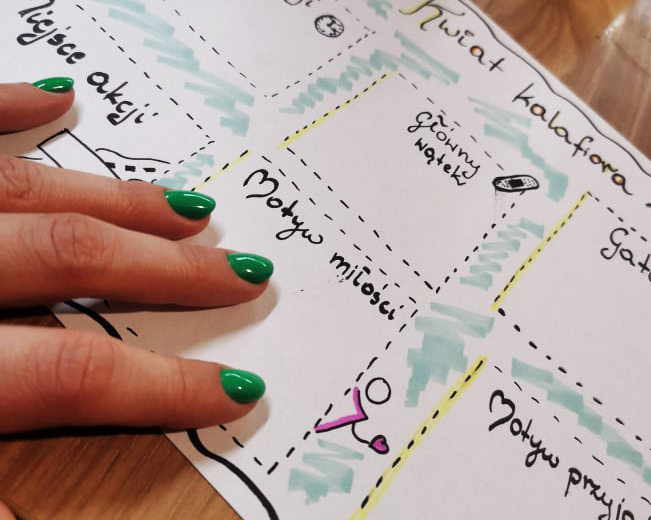 Miejsce akcji
Kwiat kalafiora
Główny
wątek
Motyw miłości
Motyw